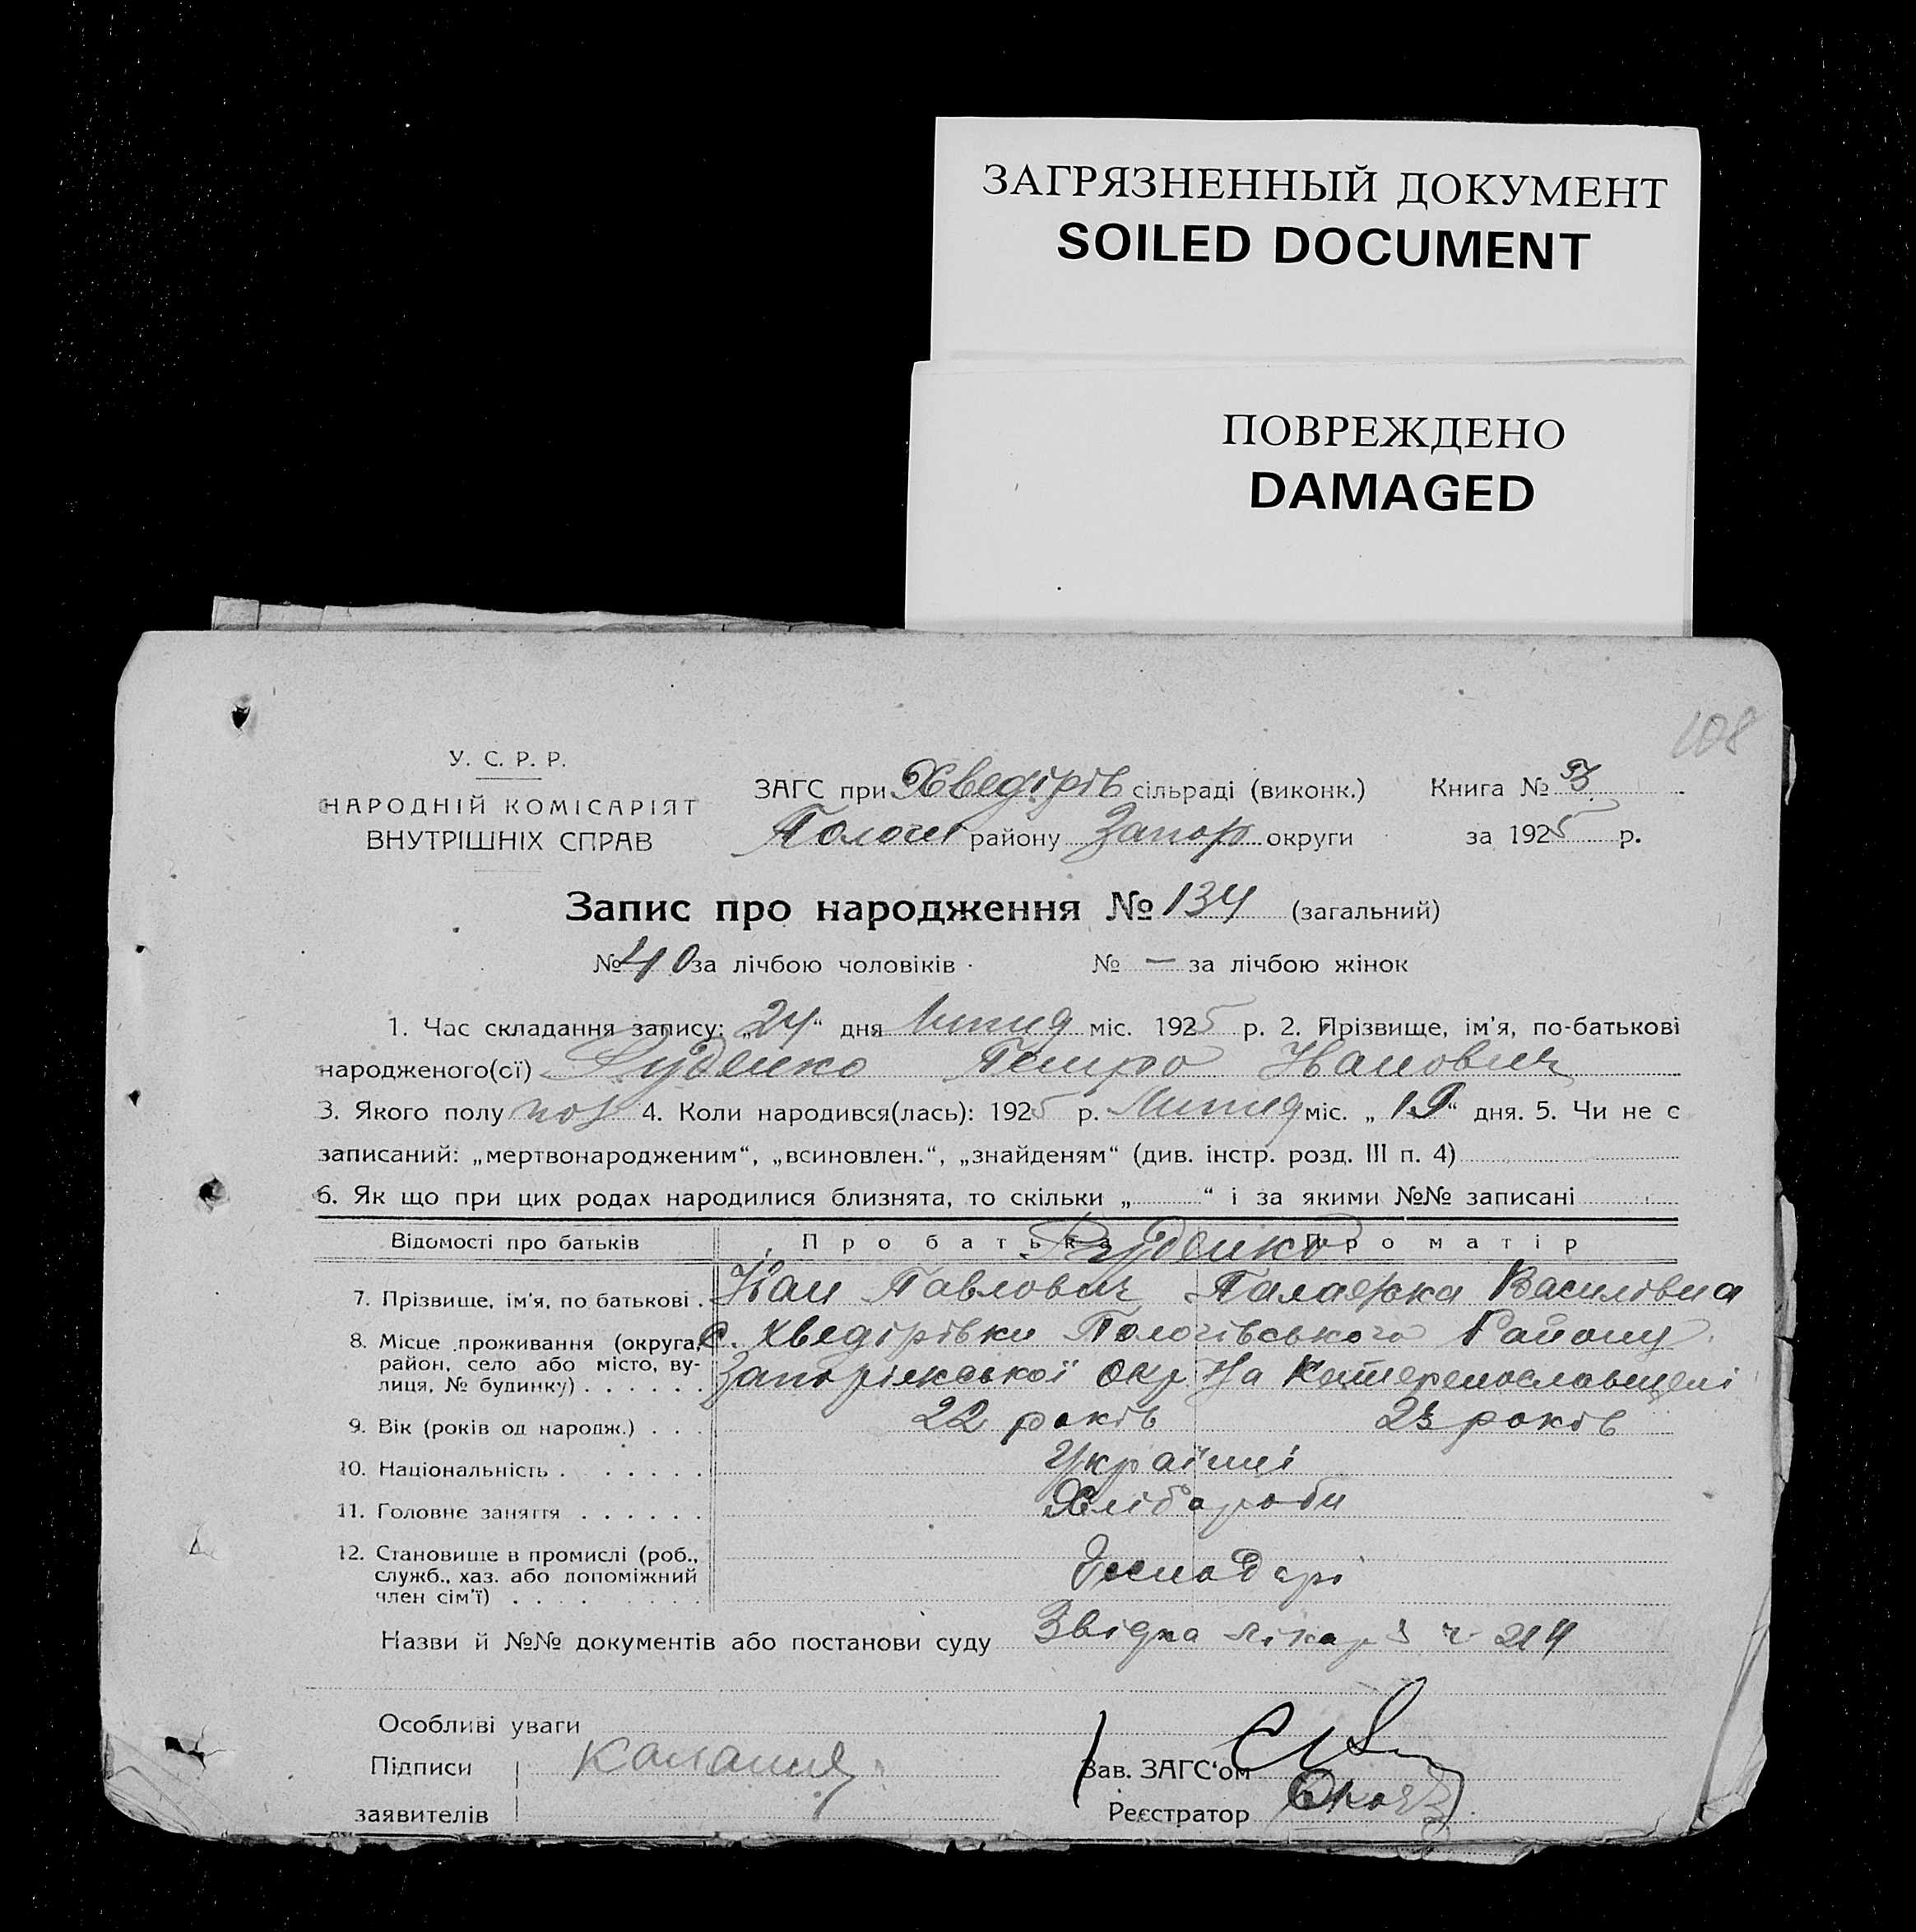 ЗАГРЯЗНЕННЫЙ ДОКУМЕНТ
SOILED DOCUMENT
ПОВРЕЖДЕНО
DAMAGED
108
У. С. Р. Р.
НАРОДНІЙ КОМІСАРІЯТ
ВНУТРІШНІХ СПРАВ
ЗАГС при Хведірів сільраді (виконк.) Книга № 3
Пологи району Запор округи за 1925 р.
Запис про народження № 134 (загальний)
№ 40 за лічбою чоловіків № — за лічбою жінок
1. Час складання запису: „24“ дня Липня міс. 1925 р. 2. Прізвище, ім'я, по-батькові
народженого(ої) Руденко Петро Іванович
3. Якого полу чол 4. Коли народився(лась): 1925 р. Липня міс. „19“ дня. 5. Чи не є
записаний: „мертвонародженим“, „всиновлен.“, „знайденям“ (див. інстр. розд. III п. 4)
6. Як що при цих родах народилися близнята, то скільки „ “ і за якими №№ записані
Відомості про батьків Про батька Про матір
Руденко
7. Прізвище, ім'я, по батькові . Іван Павлович Палажка Василівна
8. Місце проживання (округа, с. Хведірівки Пологівського Району
район, село або місто, ву- Запоріжської Окр На Катеренославщені
лиця, № будинку) . . . . . .
9. Вік (років од народж.) . . . 22 років 23 років
10. Національність . . . . . . Українці
11. Головне заняття . . . . . . Хлібороби
12. Становище в промислі (роб.,
служб., хаз. або допоміжний Господарі
член сім'ї) . . . . . . . .
Назви й №№ документів або постанови суду Звідка лікаря ч 214
Особливі уваги
Підписи
заявителів
Зав. ЗАГС'ом
Реєстратор